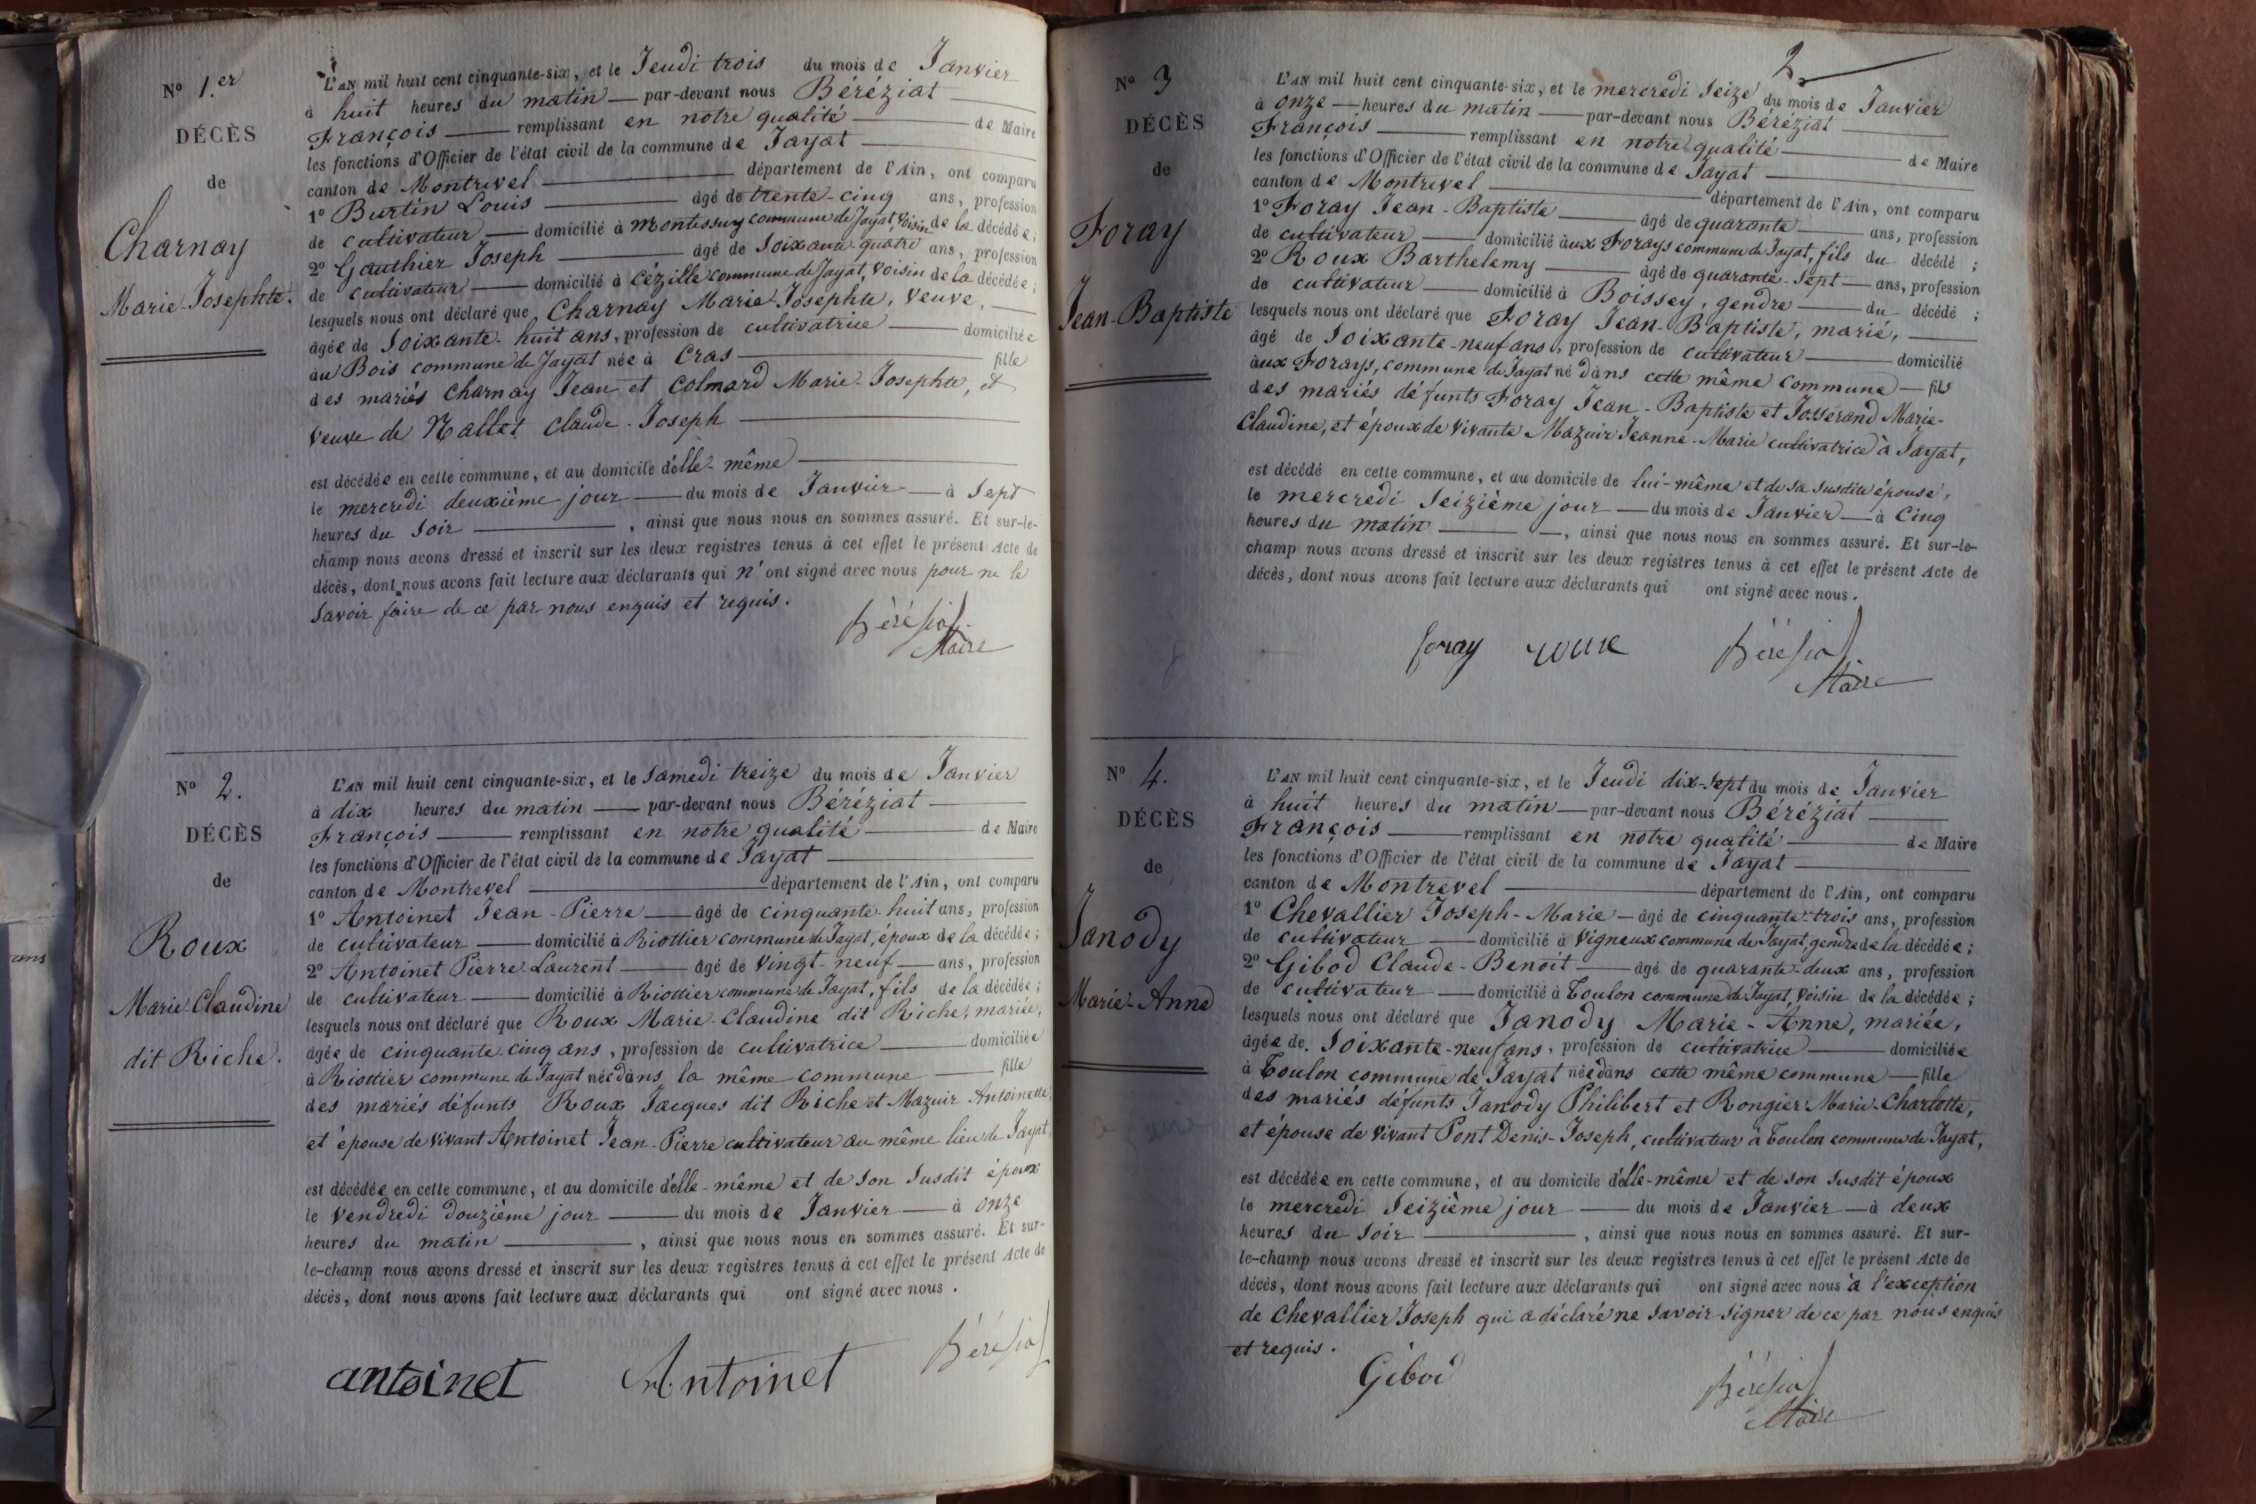 N° 1.er
DÉCÈS
de
Charnay
Marie-Josephte.
L'AN mil huit cent cinquante-six, et le Jeudi trois du mois de Janvier
à huit heures du matin par-devant nous Béréziat
François remplissant en notre qualité de Maire
les fonctions d'Officier de l'état civil de la commune de Jayat
canton de Montrevel département de l'Ain, ont comparu
1° Burtin Louis âgé de trente-cinq ans, profession
de cultivateur domicilié à Montessuy commune de Jayat, voisin de la décédée;
2° Gauthier Joseph âgé de Soixante-quatre ans, profession
de cultivateur domicilié à Cézille commune de Jayat, voisin de la décédée;
lesquels nous ont déclaré que Charnay Marie-Josephte, veuve,
âgée de Soixante-huit ans, profession de cultivatrice domiciliée
au Bois commune de Jayat née à Cras fille
des mariés Charnay Jean et Colmard Marie-Josephte, et
veuve de Nallet Claude-Joseph
est décédée en cette commune, et au domicile d'elle-même
le mercredi deuxième jour du mois de Janvier à Sept
heures du Soir , ainsi que nous nous en sommes assuré. Et sur-le-
champ nous avons dressé et inscrit sur les deux registres tenus à cet effet le présent Acte de
décès, dont nous avons fait lecture aux déclarants qui n'ont signé avec nous pour ne le
Savoir faire de ce par nous enquis et requis.
Béréziat
Maire
N° 2.
DÉCÈS
de
Roux
Marie-Claudine
dit Riche.
L'AN mil huit cent cinquante-six, et le Samedi treize du mois de Janvier
à dix heures du matin par-devant nous Béréziat
François remplissant en notre qualité de Maire
les fonctions d'Officier de l'état civil de la commune de Jayat
canton de Montrevel département de l'Ain, ont comparu
1° Antoinet Jean-Pierre âgé de cinquante-huit ans, profession
de cultivateur domicilié à Riottier commune de Jayat, époux de la décédée;
2° Antoinet Pierre-Laurent âgé de vingt-neuf ans, profession
de cultivateur domicilié à Riottier commune de Jayat, fils de la décédée;
lesquels nous ont déclaré que Roux Marie-Claudine dit Riche, mariée,
âgée de cinquante-cinq ans, profession de cultivatrice domiciliée
à Riottier commune de Jayat née dans la même commune fille
des mariés défunts Roux Jacques dit Riche et Mazuir Antoinette,
et épouse de vivant Antoinet Jean-Pierre cultivateur au même lieu de Jayat,
est décédée en cette commune, et au domicile d'elle-même et de son susdit époux
le vendredi douzième jour du mois de Janvier à onze
heures du matin , ainsi que nous nous en sommes assuré. Et sur-
le-champ nous avons dressé et inscrit sur les deux registres tenus à cet effet le présent Acte de
décès, dont nous avons fait lecture aux déclarants qui ont signé avec nous.
antoinet Antoinet Béréziat
2
N° 3
DÉCÈS
de
Foray
Jean-Baptiste
L'AN mil huit cent cinquante-six, et le mercredi Seize du mois de Janvier
à onze heures du matin par-devant nous Béréziat
François remplissant en notre qualité de Maire
les fonctions d'Officier de l'état civil de la commune de Jayat
canton de Montrevel département de l'Ain, ont comparu
1° Foray Jean-Baptiste âgé de quarante ans, profession
de cultivateur domicilié aux Forays commune de Jayat, fils du décédé;
2° Roux Barthelemy âgé de quarante-Sept ans, profession
de cultivateur domicilié à Boissey, gendre du décédé;
lesquels nous ont déclaré que Foray Jean-Baptiste, marié,
âgé de Soixante-neuf ans, profession de cultivateur domicilié
aux Forays, commune de Jayat né dans cette même commune fils
des mariés défunts Foray Jean-Baptiste et Josserand Marie-
Claudine, et époux de vivante Mazuir Jeanne-Marie cultivatrice à Jayat,
est décédé en cette commune, et au domicile de lui-même et de sa susdite épouse,
le mercredi Seizième jour du mois de Janvier à Cinq
heures du matin , ainsi que nous nous en sommes assuré. Et sur-le-
champ nous avons dressé et inscrit sur les deux registres tenus à cet effet le présent Acte de
décès, dont nous avons fait lecture aux déclarants qui ont signé avec nous.
foray roux Béréziat
Maire
N° 4.
DÉCÈS
de
Janody
Marie-Anne
L'AN mil huit cent cinquante-six, et le Jeudi dix-Sept du mois de Janvier
à huit heures du matin par-devant nous Béréziat
François remplissant en notre qualité de Maire
les fonctions d'Officier de l'état civil de la commune de Jayat
canton de Montrevel département de l'Ain, ont comparu
1° Chevallier Joseph-Marie âgé de cinquante-trois ans, profession
de cultivateur domicilié à Vigneux commune de Jayat, gendre de la décédée;
2° Gibod Claude-Benoit âgé de quarante-deux ans, profession
de cultivateur domicilié à Toulon commune de Jayat, voisin de la décédée;
lesquels nous ont déclaré que Janody Marie-Anne, mariée,
âgée de Soixante-neuf ans, profession de cultivatrice domiciliée
à Toulon commune de Jayat née dans cette même commune fille
des mariés défunts Janody Philibert et Rongier Marie-Charlotte,
et épouse de vivant Pont Denis-Joseph, cultivateur à Toulon commune de Jayat,
est décédée en cette commune, et au domicile d'elle-même et de son susdit époux
le mercredi Seizième jour du mois de Janvier à deux
heures du Soir , ainsi que nous nous en sommes assuré. Et sur-
le-champ nous avons dressé et inscrit sur les deux registres tenus à cet effet le présent Acte de
décès, dont nous avons fait lecture aux déclarants qui ont signé avec nous à l'exception
de Chevallier Joseph qui a déclaré ne Savoir Signer de ce par nous enquis
et requis.
Gibod Béréziat
Maire
ans